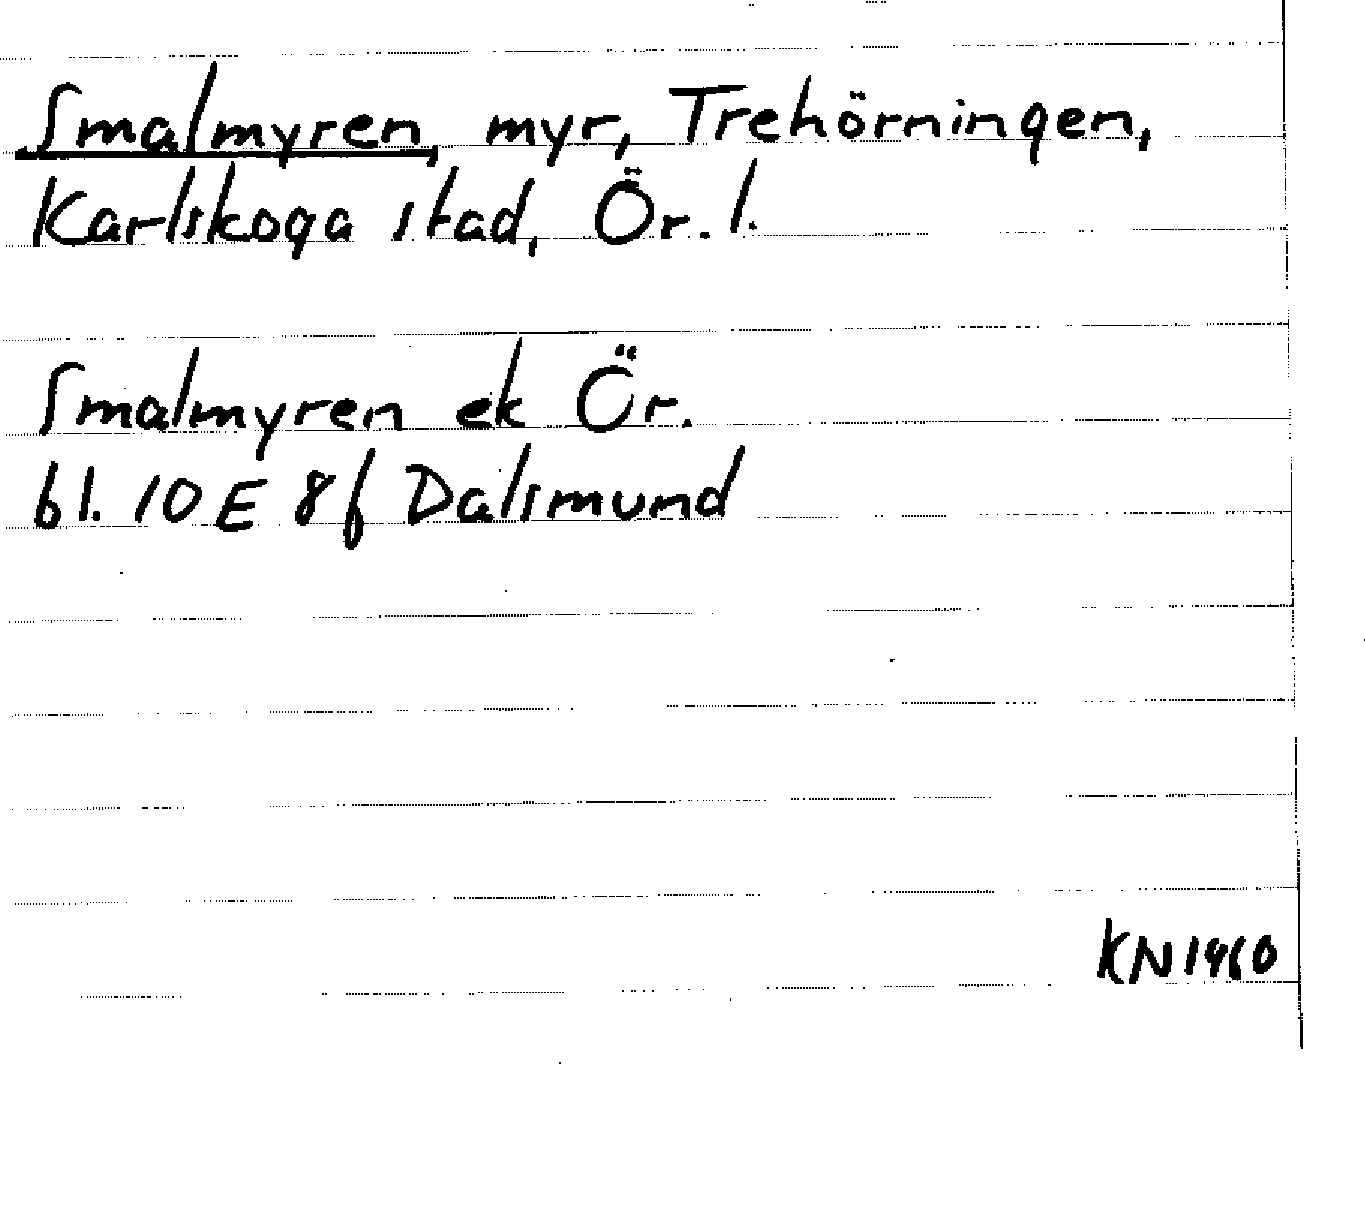 Smalmyren, myr, Trehörningen,
Karlskoga stad, Ör. l.
Smalmyren ek Ör.
bl. 10 E 8f Dalsmund
KN 1960